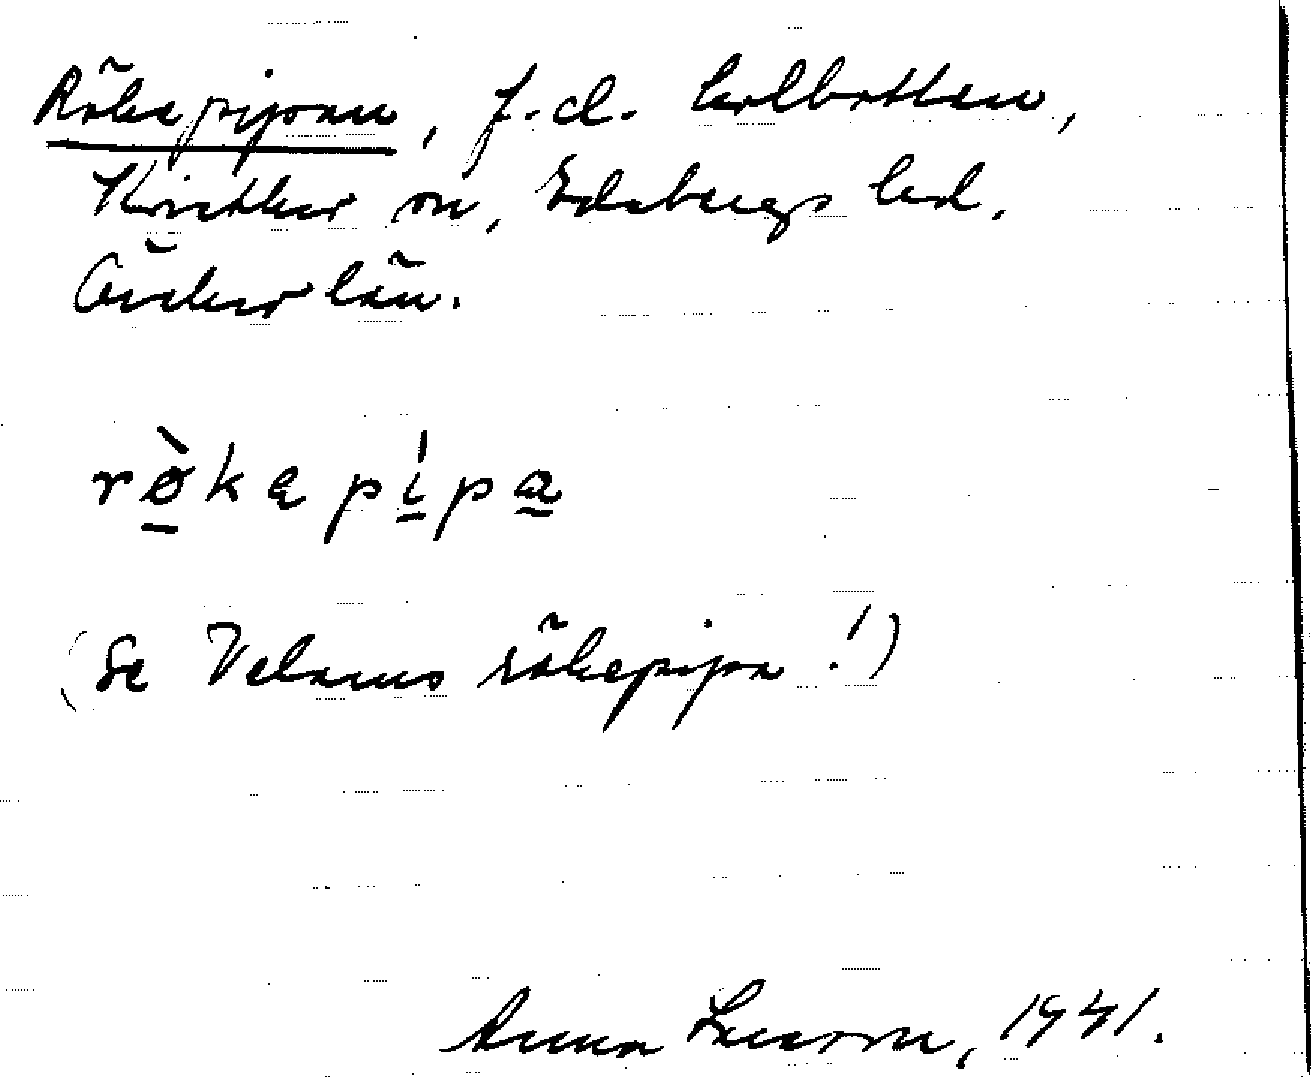 Rökepipan, f.d. kolbotten,
Kvistbro sn, Edsbergs hd.
Örebro län.
rø̠̀kəpí̠pa̠
(Se Velams rökepipa!)
Anna Larsson, 1941.